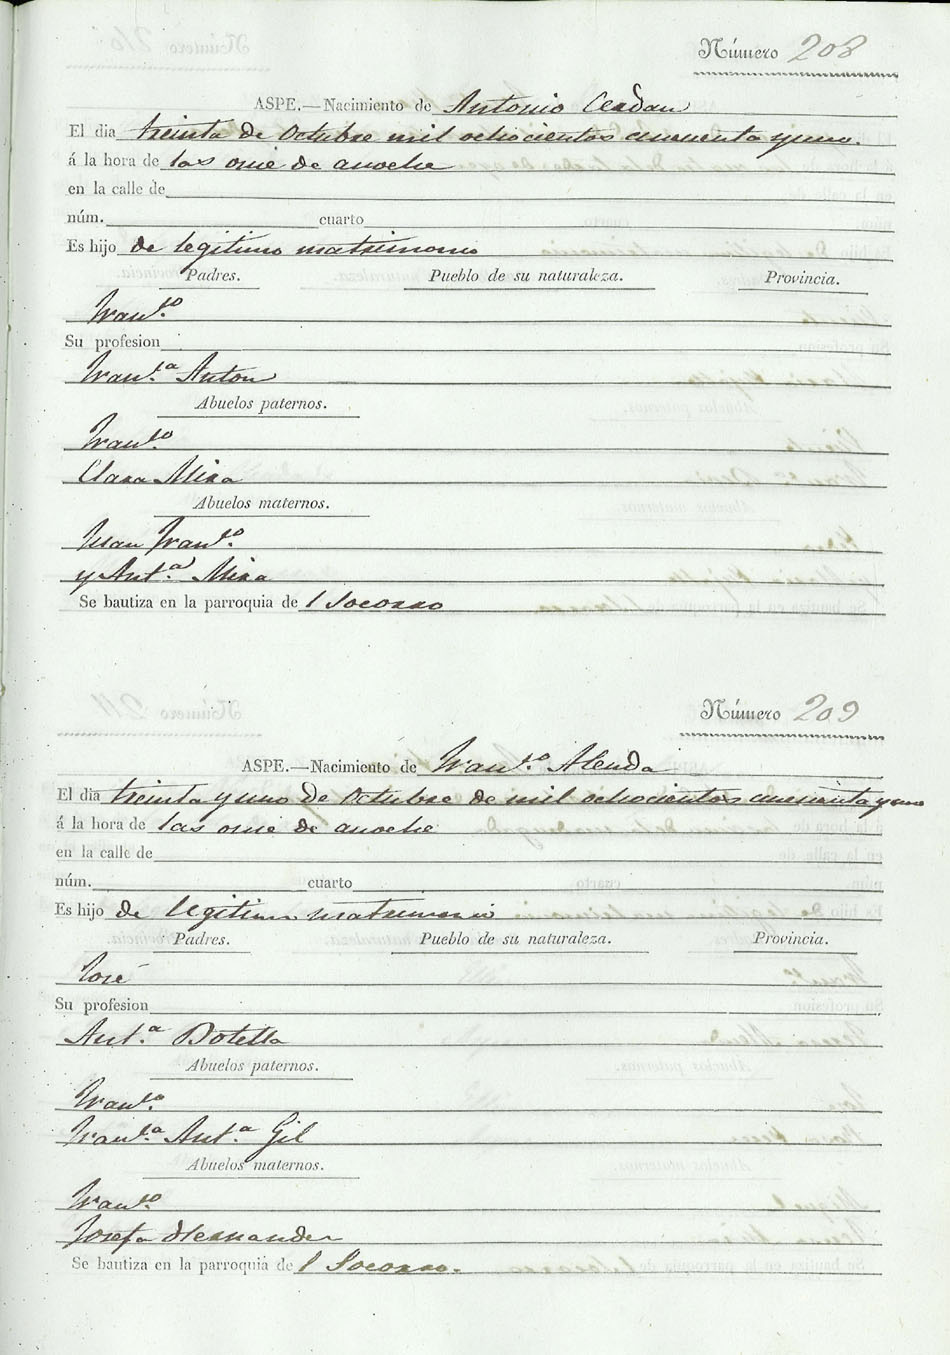 Número 208
ASPE.—Nacimiento de Antonio Cerdan
El dia treinta de Octubre mil ochocientos cincuenta y uno.
á la hora de las once de anoche
en la calle de
núm. cuarto
Es hijo de legitimo matrimonio
Padres. Pueblo de su naturaleza. Provincia.
Fran.co
Su profesion
Fran.ca Anton
Abuelos paternos.
Fran.co
Clara Mira
Abuelos maternos.
Juan Fran.co
y Ant.a Mira
Se bautiza en la parroquia de l Socorro
Número 209
ASPE.—Nacimiento de Fran.co Alenda
El dia treinta y uno de Octubre de mil ochocientos cincuenta y uno
á la hora de las once de anoche
en la calle de
núm. cuarto
Es hijo de legitimo matrimonio
Padres. Pueblo de su naturaleza. Provincia.
José
Su profesion
Ant.a Botella
Abuelos paternos.
Fran.co
Fran.ca Ant.a Gil
Abuelos maternos.
Fran.co
Josefa Hernandez
Se bautiza en la parroquia de l Socorro.